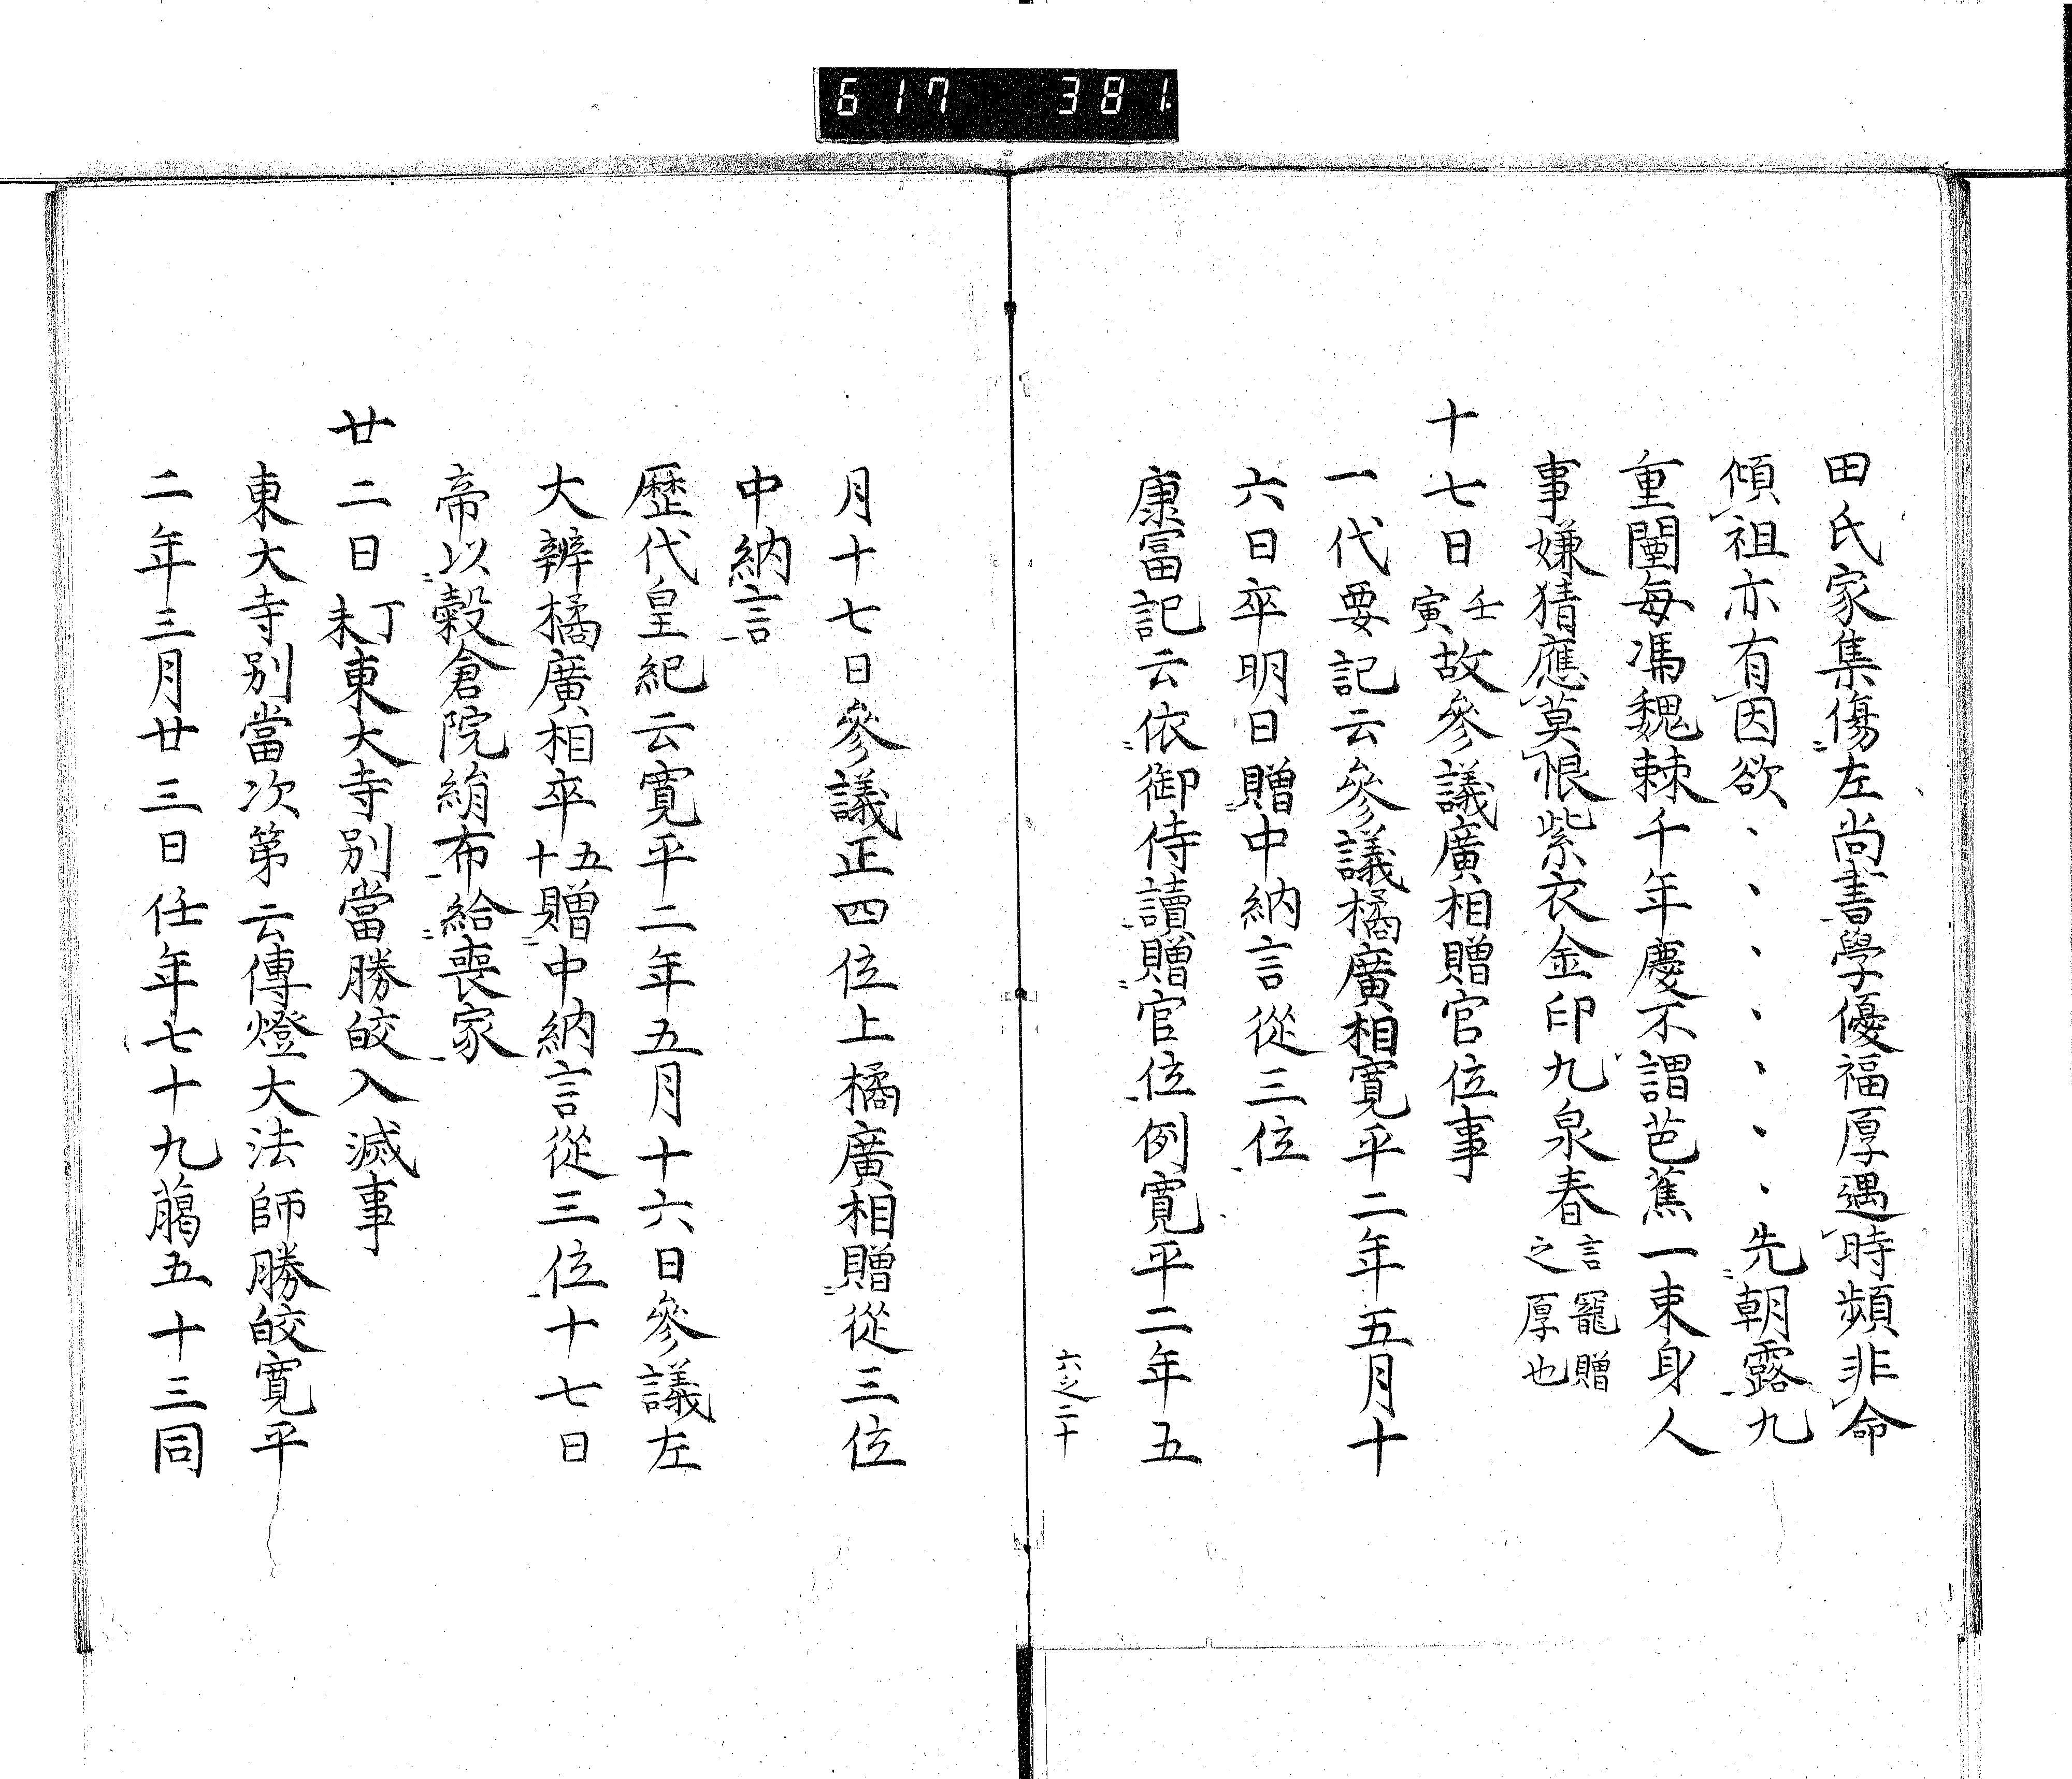 617 381
田氏家集傷左尚書學優福厚遇時頻非命
傾祖亦有因欲、、、、、、、先朝露九
重闈每馮魏棘千年慶不謂芭蕉一束身人
事嫌猜應莫恨紫衣金印九泉春言寵贈之厚也
十七日壬寅故參議廣相贈官位事
一代要記云參議橘廣相寬平二年五月十
六日卒明日贈中納言從三位
康冨記云依御侍讀贈官位例寬平二年五
六之二十
月十七日參議正四位上橘廣相贈從三位
中納言
歷代皇紀云寬平二年五月十六日參議左
大辨橘廣相卒五十贈中納言從三位十七日
帝以穀倉院絹布給喪家
廿二日丁未東大寺別當勝皎入滅事
東大寺別當次第云傳燈大法師勝皎寬平
二年三月廿三日任年七十九﨟五十三同